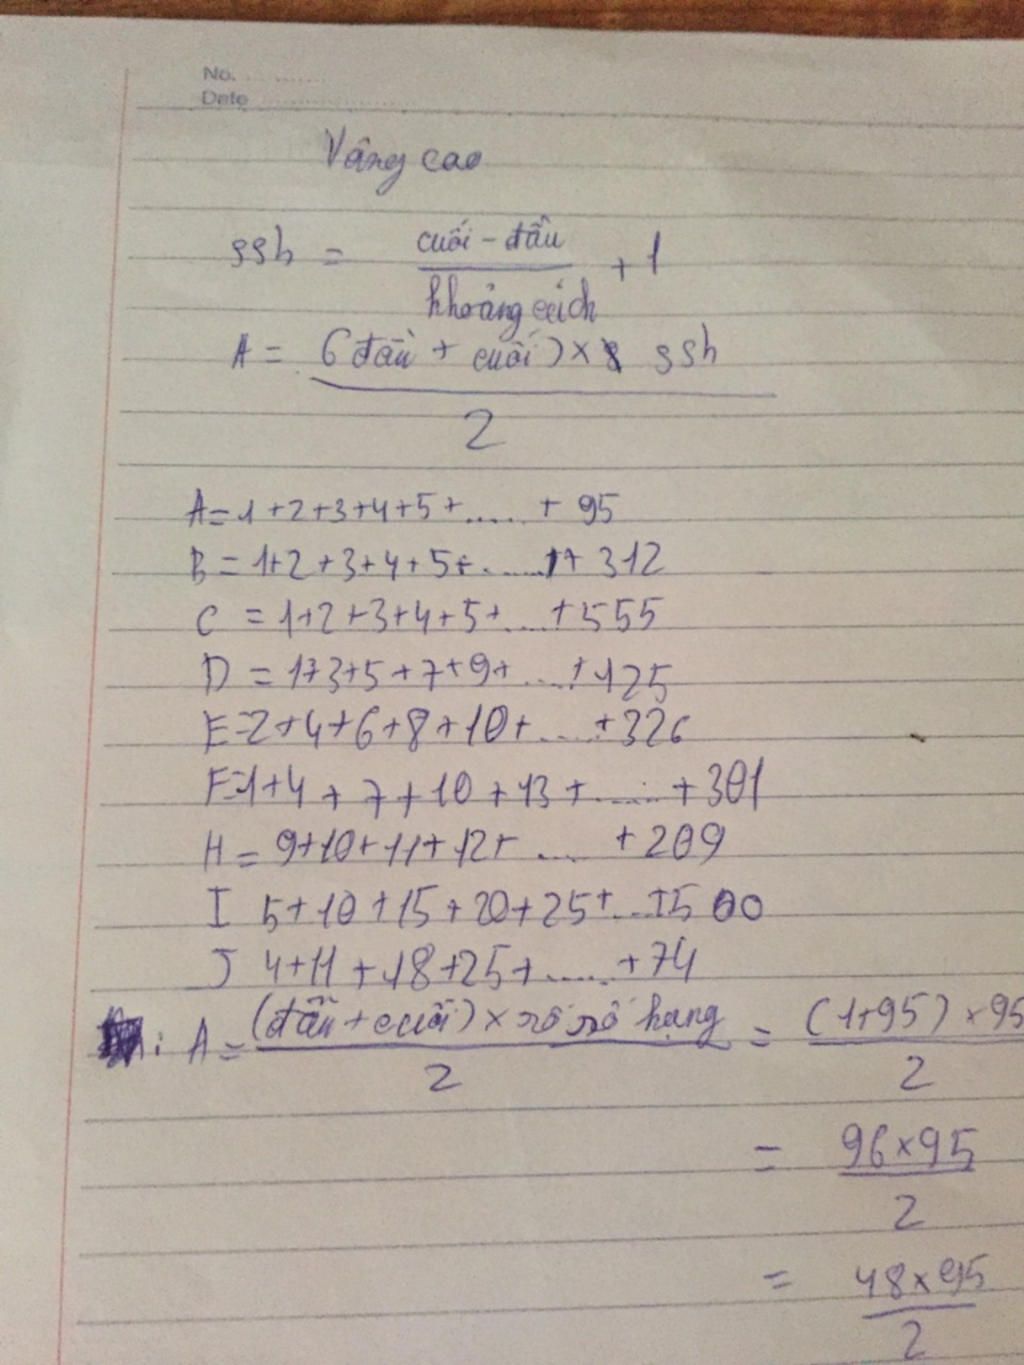 No. ............
Date ........................
Nâng cao
ssh = cuối - đầu / khoảng cách + 1
A = (đầu + cuối) x ssh / 2
A = 1+2+3+4+5+..... + 95
B = 1+2+3+4+5+......+ 312
C = 1+2+3+4+5+....+555
D = 1+3+5+7+9+....+125
E=2+4+6+8+10+....+326
F=1+4+7+10+13+......+301
H = 9+10+11+12+ .... +209
I 5+10+15+20+25+...+500
J 4+11+18+25+.....+74
: A = (đầu + cuối) x số số hạng / 2 = (1+95) x 95 / 2
= 96x95 / 2
= 48x95 / 2